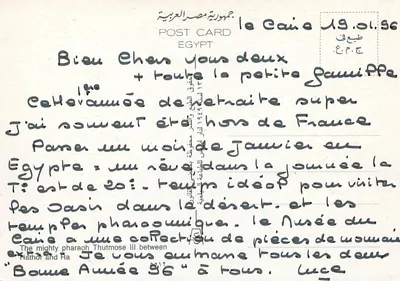 جمهورية مصر العربية
POST CARD
EGYPT
طبع فى
ج.م.ع.
le Caire 19.01.96
Bien Chers vous deux
+ toute la petite famille
Cette 1ère année de retraite super
J'ai souvent été hors de France
Passer un mois de Janvier en
Egypte = un rêve dans la journée la
T° est de 20° - temps idéal pour visiter
les Oasis dans le désert. et les
temples pharaonique. le Musée du
Caire a une collection de pièces de momies
The mighty pharaoh Thutmose III between
Hathor and Ra
Je vous embrasse tous les deux
"Bonne Année 96" à tous. Luce